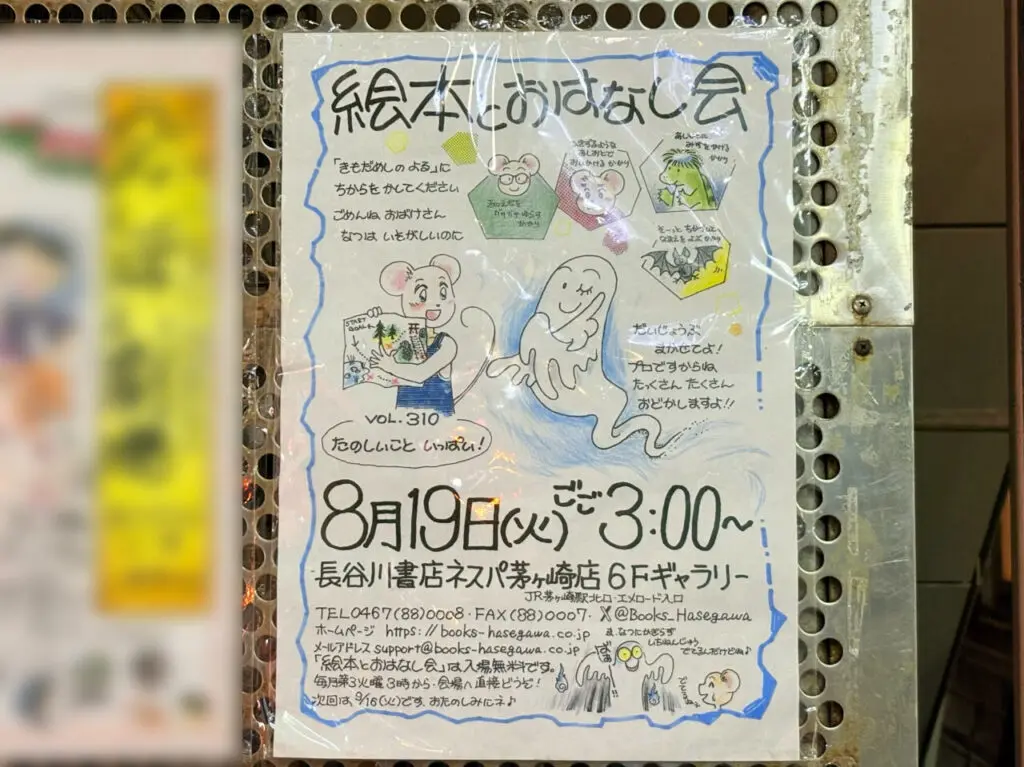 絵本とおはなし会
「きもだめしの よる」に
ちからを かしてください
ごめんね おばけさん
なつは いそがしいのに
かかり
あしもとに
みずを かける
かかり
START
GOAL
だいじょうぶ
まかせてよ!
プロですからね
たっくさん たくさん
おどかしますよ!!
VOL.310
たのしいこと いっぱい!
8月19日(火)ごご3:00~
長谷川書店ネスパ茅ヶ崎店 6Fギャラリー
JR茅ヶ崎駅北口・エメロード入口
TEL0467(88)0008・FAX(88)0007・X@Books_Hasegawa
ホームページ https://books-hasegawa.co.jp
メールアドレス support@books-hasegawa.co.jp
「絵本とおはなし会」は入場無料です。
毎月第3火曜 3時から・会場へ直接どうぞ!
次回は、9/16(火)です。おたのしみにネ♪
ま、なつにかぎらず
いちねんじゅう
でてるんだけどね♪